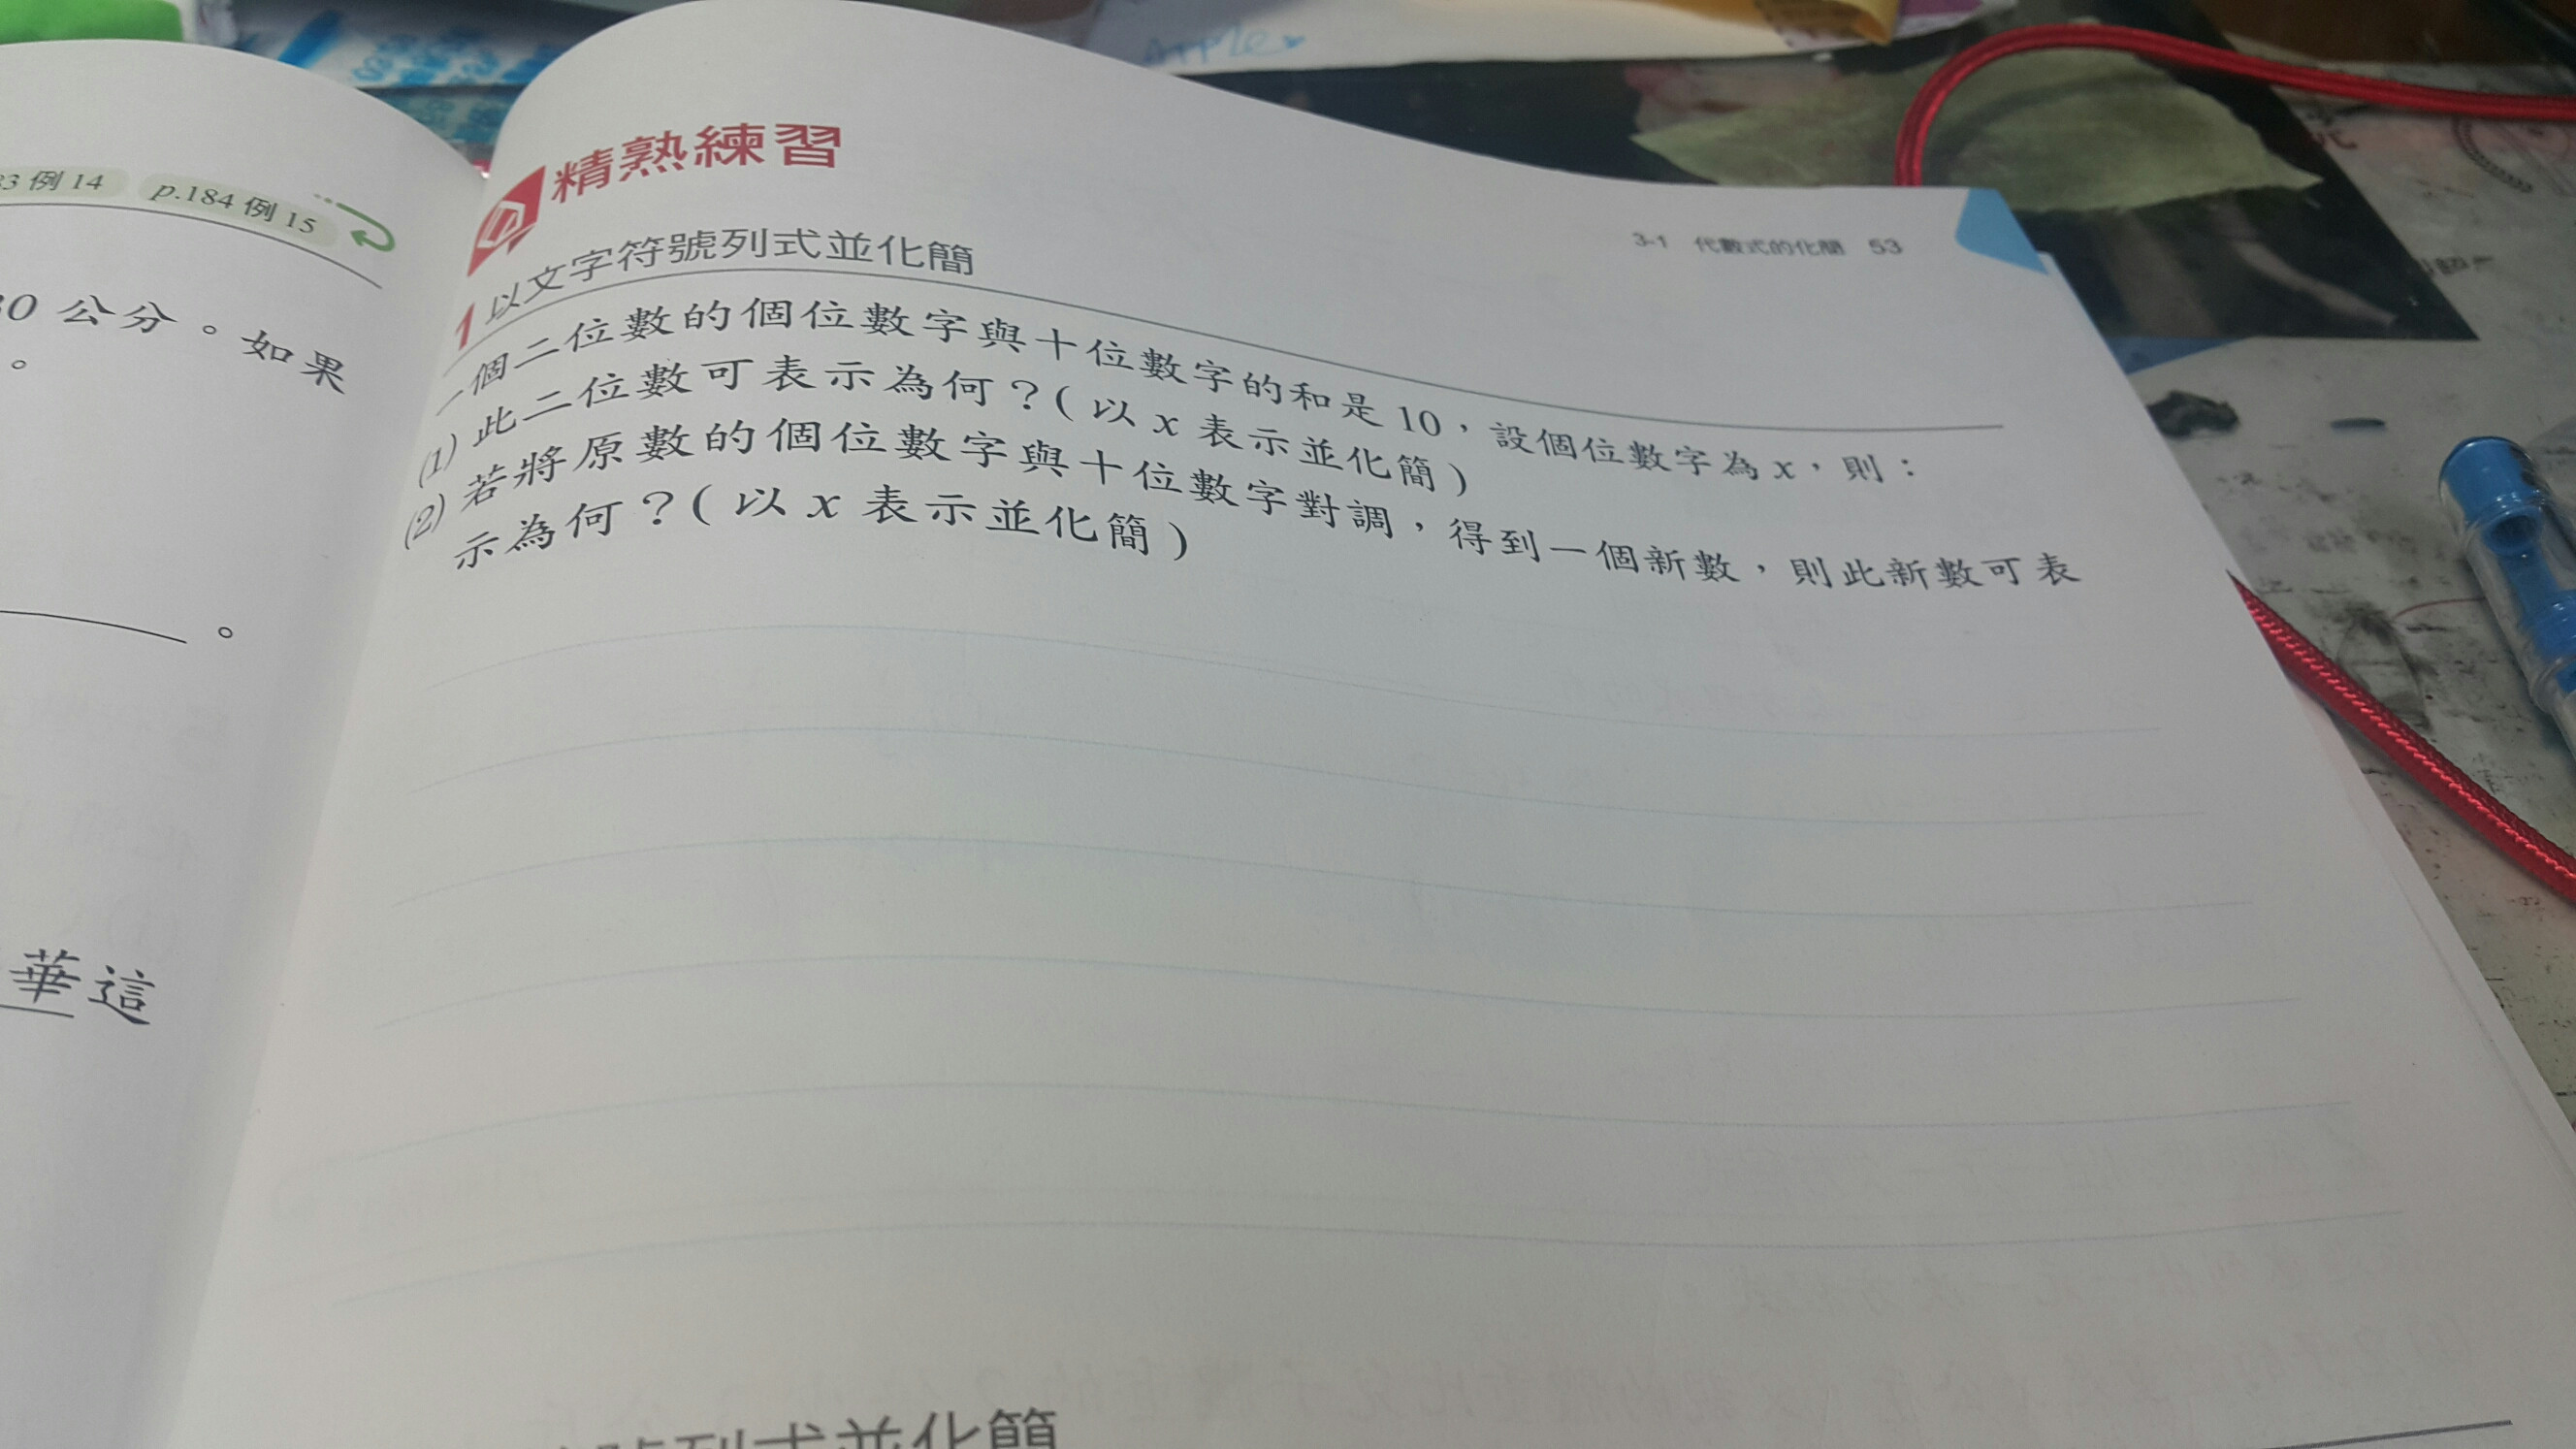 Apple
3 例 14 p.184 例 15
0 公分。如果
。
。
華這
精熟練習
3-1 代數式的化簡 53
1 以文字符號列式並化簡
一個二位數的個位數字與十位數字的和是 10，設個位數字為 x，則：
(1) 此二位數可表示為何？( 以 x 表示並化簡 )
(2) 若將原數的個位數字與十位數字對調，得到一個新數，則此新數可表
示為何？( 以 x 表示並化簡 )
號列式並化簡